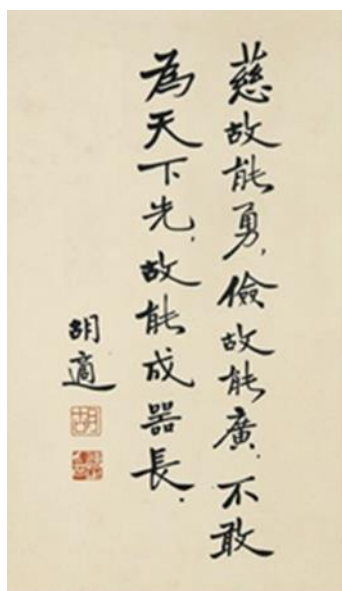 慈故能勇，儉故能廣．不敢
為天下先，故能成器長．
胡適